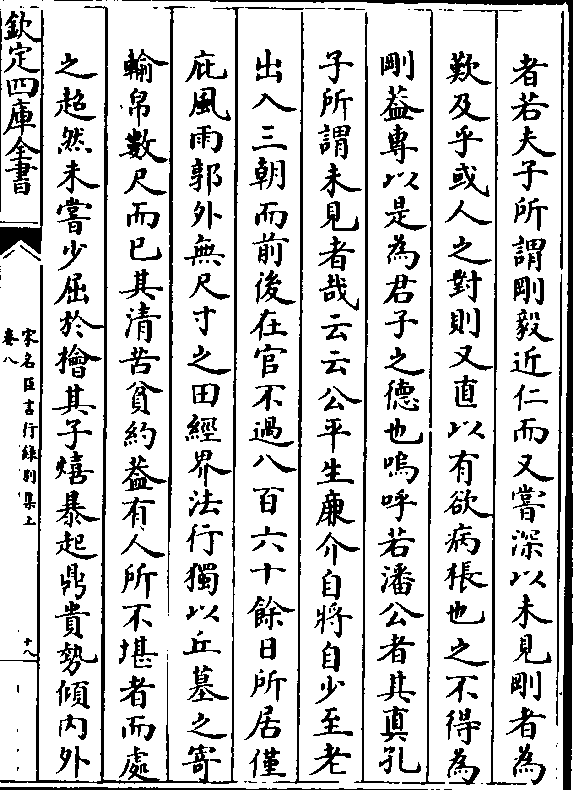 者若夫子所謂剛毅近仁而又嘗深以未見剛者為
歎及乎或人之對則又直以有欲病棖也之不得為
剛葢專以是為君子之德也嗚呼若潘公者其真孔
子所謂未見者哉云云公平生廉介自將自少至老
出入三朝而前後在官不過八百六十餘日所居僅
庇風雨郭外無尺寸之田經界法行獨以丘墓之寄
輸帛數尺而已其清苦貧約葢有人所不堪者而處
之超然未嘗少屈於檜其子熺暴起鼎貴勢傾內外
欽定四庫全書
宋名臣言行錄別集上
卷八
十八